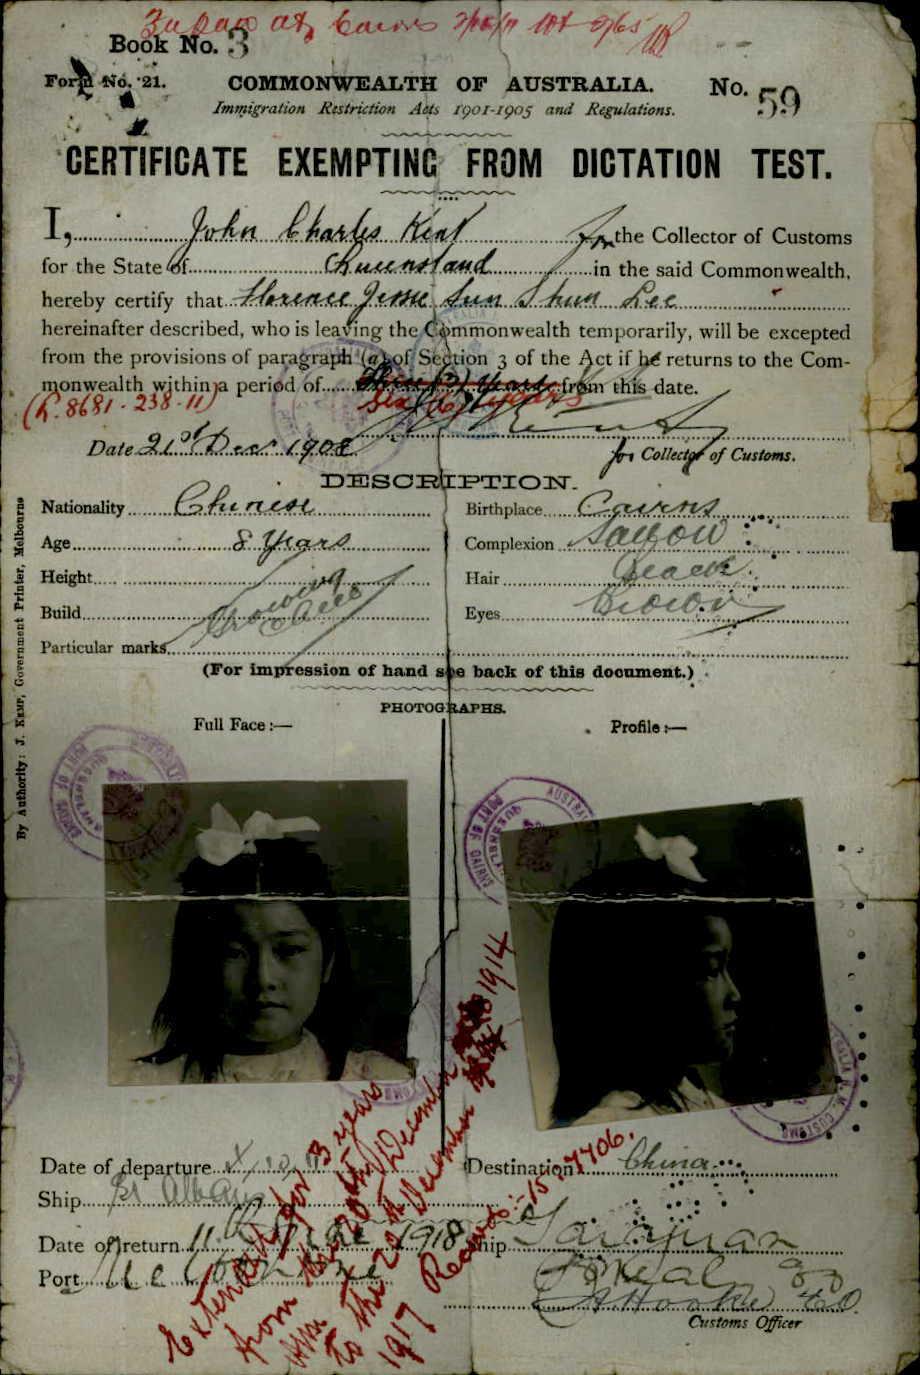 Book No. 3
Form No. 21.
COMMONWEALTH OF AUSTRALIA.
No. 59
Immigration Restriction Acts 1901-1905 and Regulations.
CERTIFICATE EXEMPTING FROM DICTATION TEST.
I, John Charles Kent for the Collector of Customs
for the State of Queensland in the said Commonwealth,
hereby certify that Florence Jessie Sun Shun Lee
hereinafter described, who is leaving the Commonwealth temporarily, will be excepted
from the provisions of paragraph (a) of Section 3 of the Act if he returns to the Com-
monwealth within a period of Three (3) years from this date.
Six (6) years
Date 21st Decr 1908
for Collector of Customs.
DESCRIPTION.
Nationality Chinese
Birthplace Cairns
Age 8 Years
Complexion Sallow
Height
Hair Black
Build Growing
Eyes Brown
Particular marks
(For impression of hand see back of this document.)
PHOTOGRAPHS.
Full Face:—
Profile:—
By Authority: J. Kemp, Government Printer, Melbourne
PORT OF CAIRNS
Extended for 3 years
from the 20th December 1914
to the 20th December
1917
Date of departure
Destination China
Ship
Date of return 1918
Ship Taiyuan
Port
Customs Officer